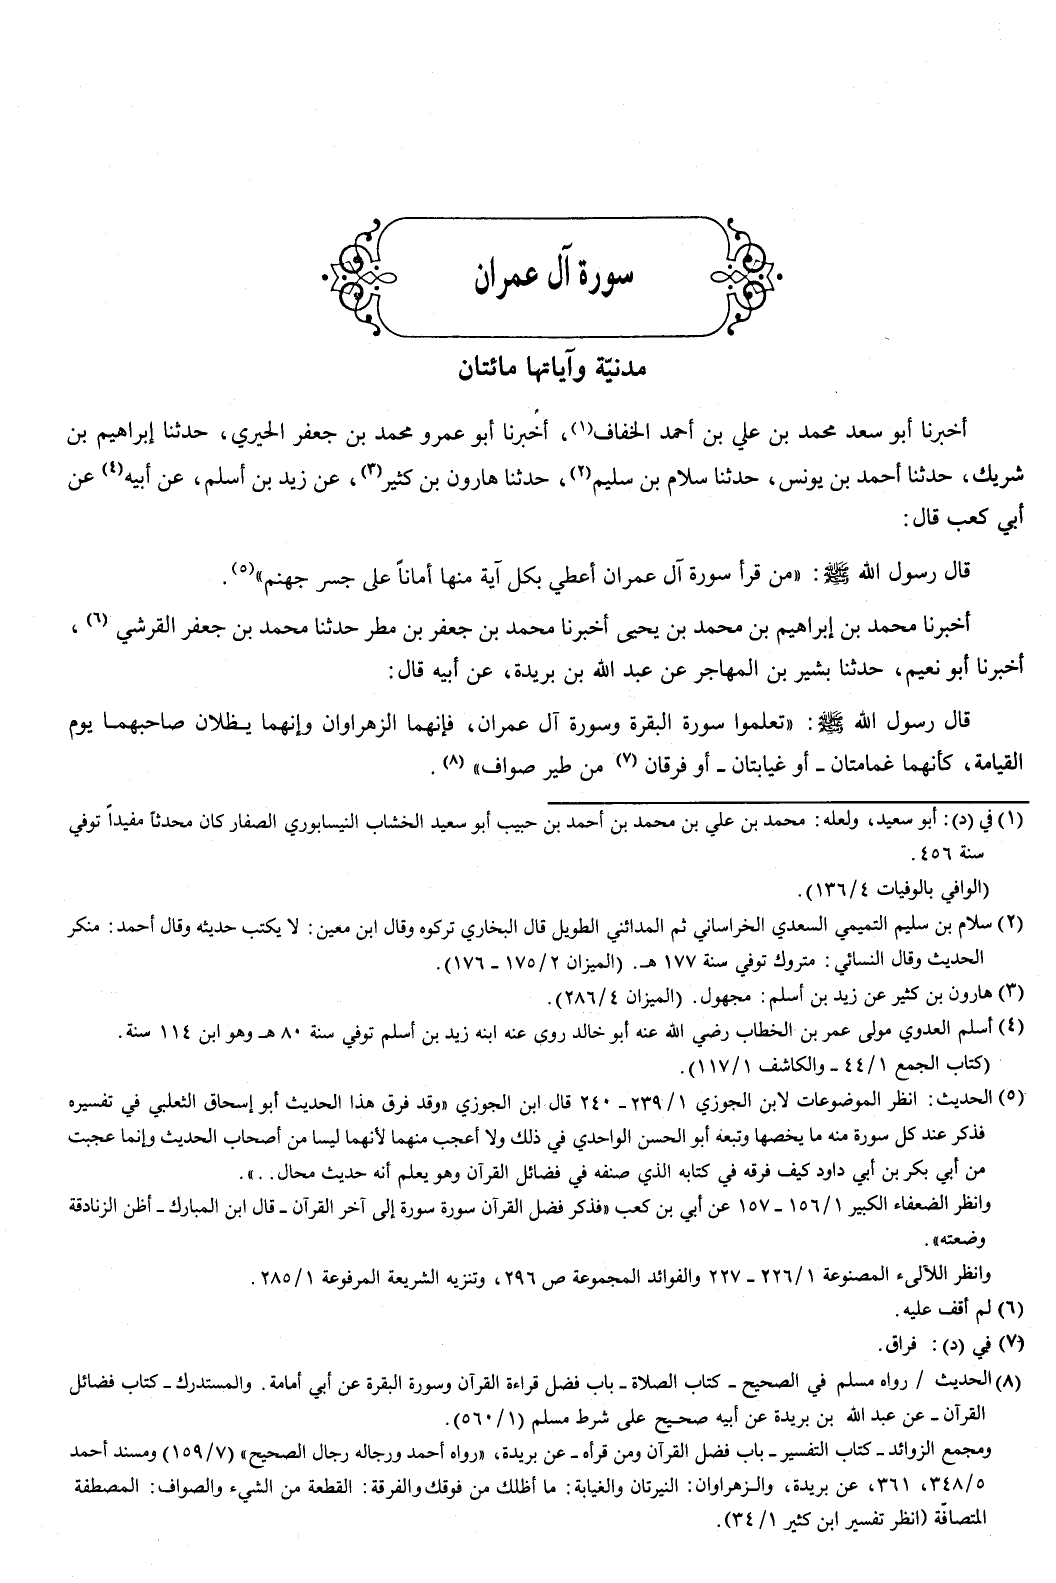 سورة آل عمران
مدنيّة وآياتها مائتان
أخبرنا أبو سعد محمد بن علي بن أحمد الخفاف(١)، أخبرنا أبو عمرو محمد بن جعفر الحيري، حدثنا إبراهيم بن
شريك، حدثنا أحمد بن يونس، حدثنا سلام بن سليم(٢)، حدثنا هارون بن كثير(٣)، عن زيد بن أسلم، عن أبيه(٤) عن
أبي كعب قال:
قال رسول الله ﷺ: «من قرأ سورة آل عمران أعطي بكل آية منها أماناً على جسر جهنم»(٥).
أخبرنا محمد بن إبراهيم بن محمد بن يحيى أخبرنا محمد بن جعفر بن مطر حدثنا محمد بن جعفر القرشي (٦)،
أخبرنا أبو نعيم، حدثنا بشير بن المهاجر عن عبد الله بن بريدة، عن أبيه قال:
قال رسول الله ﷺ: «تعلموا سورة البقرة وسورة آل عمران، فإنهما الزهراوان وإنهما يظلان صاحبهما يوم
القيامة، كأنهما غمامتان ـ أو غيابتان ـ أو فرقان (٧) من طير صواف» (٨).
(١) في (د): أبو سعيد، ولعله: محمد بن علي بن محمد بن أحمد بن حبيب أبو سعيد الخشاب النيسابوري الصفار كان محدثاً مفيداً توفي
سنة ٤٥٦.
(الوافي بالوفيات ١٣٦/٤).
(٢) سلام بن سليم التميمي السعدي الخراساني ثم المدائني الطويل قال البخاري تركوه وقال ابن معين: لا يكتب حديثه وقال أحمد: منكر
الحديث وقال النسائي: متروك توفي سنة ١٧٧ هـ. (الميزان ١٧٥/٢ ـ ١٧٦).
(٣) هارون بن كثير عن زيد بن أسلم: مجهول. (الميزان ٢٨٦/٤).
(٤) أسلم العدوي مولى عمر بن الخطاب رضي الله عنه أبو خالد روي عنه ابنه زيد بن أسلم توفي سنة ٨٠ هـ وهو ابن ١١٤ سنة.
(كتاب الجمع ٤٤/١ ـ والكاشف ١١٧/١).
(٥) الحديث: انظر الموضوعات لابن الجوزي ٢٣٩/١ ـ ٢٤٠ قال ابن الجوزي «وقد فرق هذا الحديث أبو إسحاق الثعلبي في تفسيره
فذكر عند كل سورة منه ما يخصها وتبعه أبو الحسن الواحدي في ذلك ولا أعجب منهما لأنهما ليسا من أصحاب الحديث وإنما عجبت
من أبي بكر بن أبي داود كيف فرقه في كتابه الذي صنفه في فضائل القرآن وهو يعلم أنه حديث محال. . ».
وانظر الضعفاء الكبير ١٥٦/١ ـ ١٥٧ عن أبي بن كعب «فذكر فضل القرآن سورة سورة إلى آخر القرآن ـ قال ابن المبارك ـ أظن الزنادقة
وضعته».
وانظر اللآلىء المصنوعة ٢٢٦/١ ـ ٢٢٧ والفوائد المجموعة ص ٢٩٦، وتنزيه الشريعة المرفوعة ٢٨٥/١.
(٦) لم أقف عليه.
(٧) في (د): فراق.
(٨) الحديث / رواه مسلم في الصحيح ـ كتاب الصلاة ـ باب فضل قراءة القرآن وسورة البقرة عن أبي أمامة. والمستدرك ـ كتاب فضائل
القرآن ـ عن عبد الله بن بريدة عن أبيه صحيح على شرط مسلم (٥٦٠/١).
ومجمع الزوائد ـ كتاب التفسير ـ باب فضل القرآن ومن قرأه ـ عن بريدة، «رواه أحمد ورجاله رجال الصحيح» (١٥٩/٧) ومسند أحمد
٣٤٨/٥، ٣٦١، عن بريدة، والزهراوان: النيرتان والغيابة: ما أظلك من فوقك والفرقة: القطعة من الشيء والصواف: المصطفة
المتصافّة (انظر تفسير ابن كثير ٣٤/١).